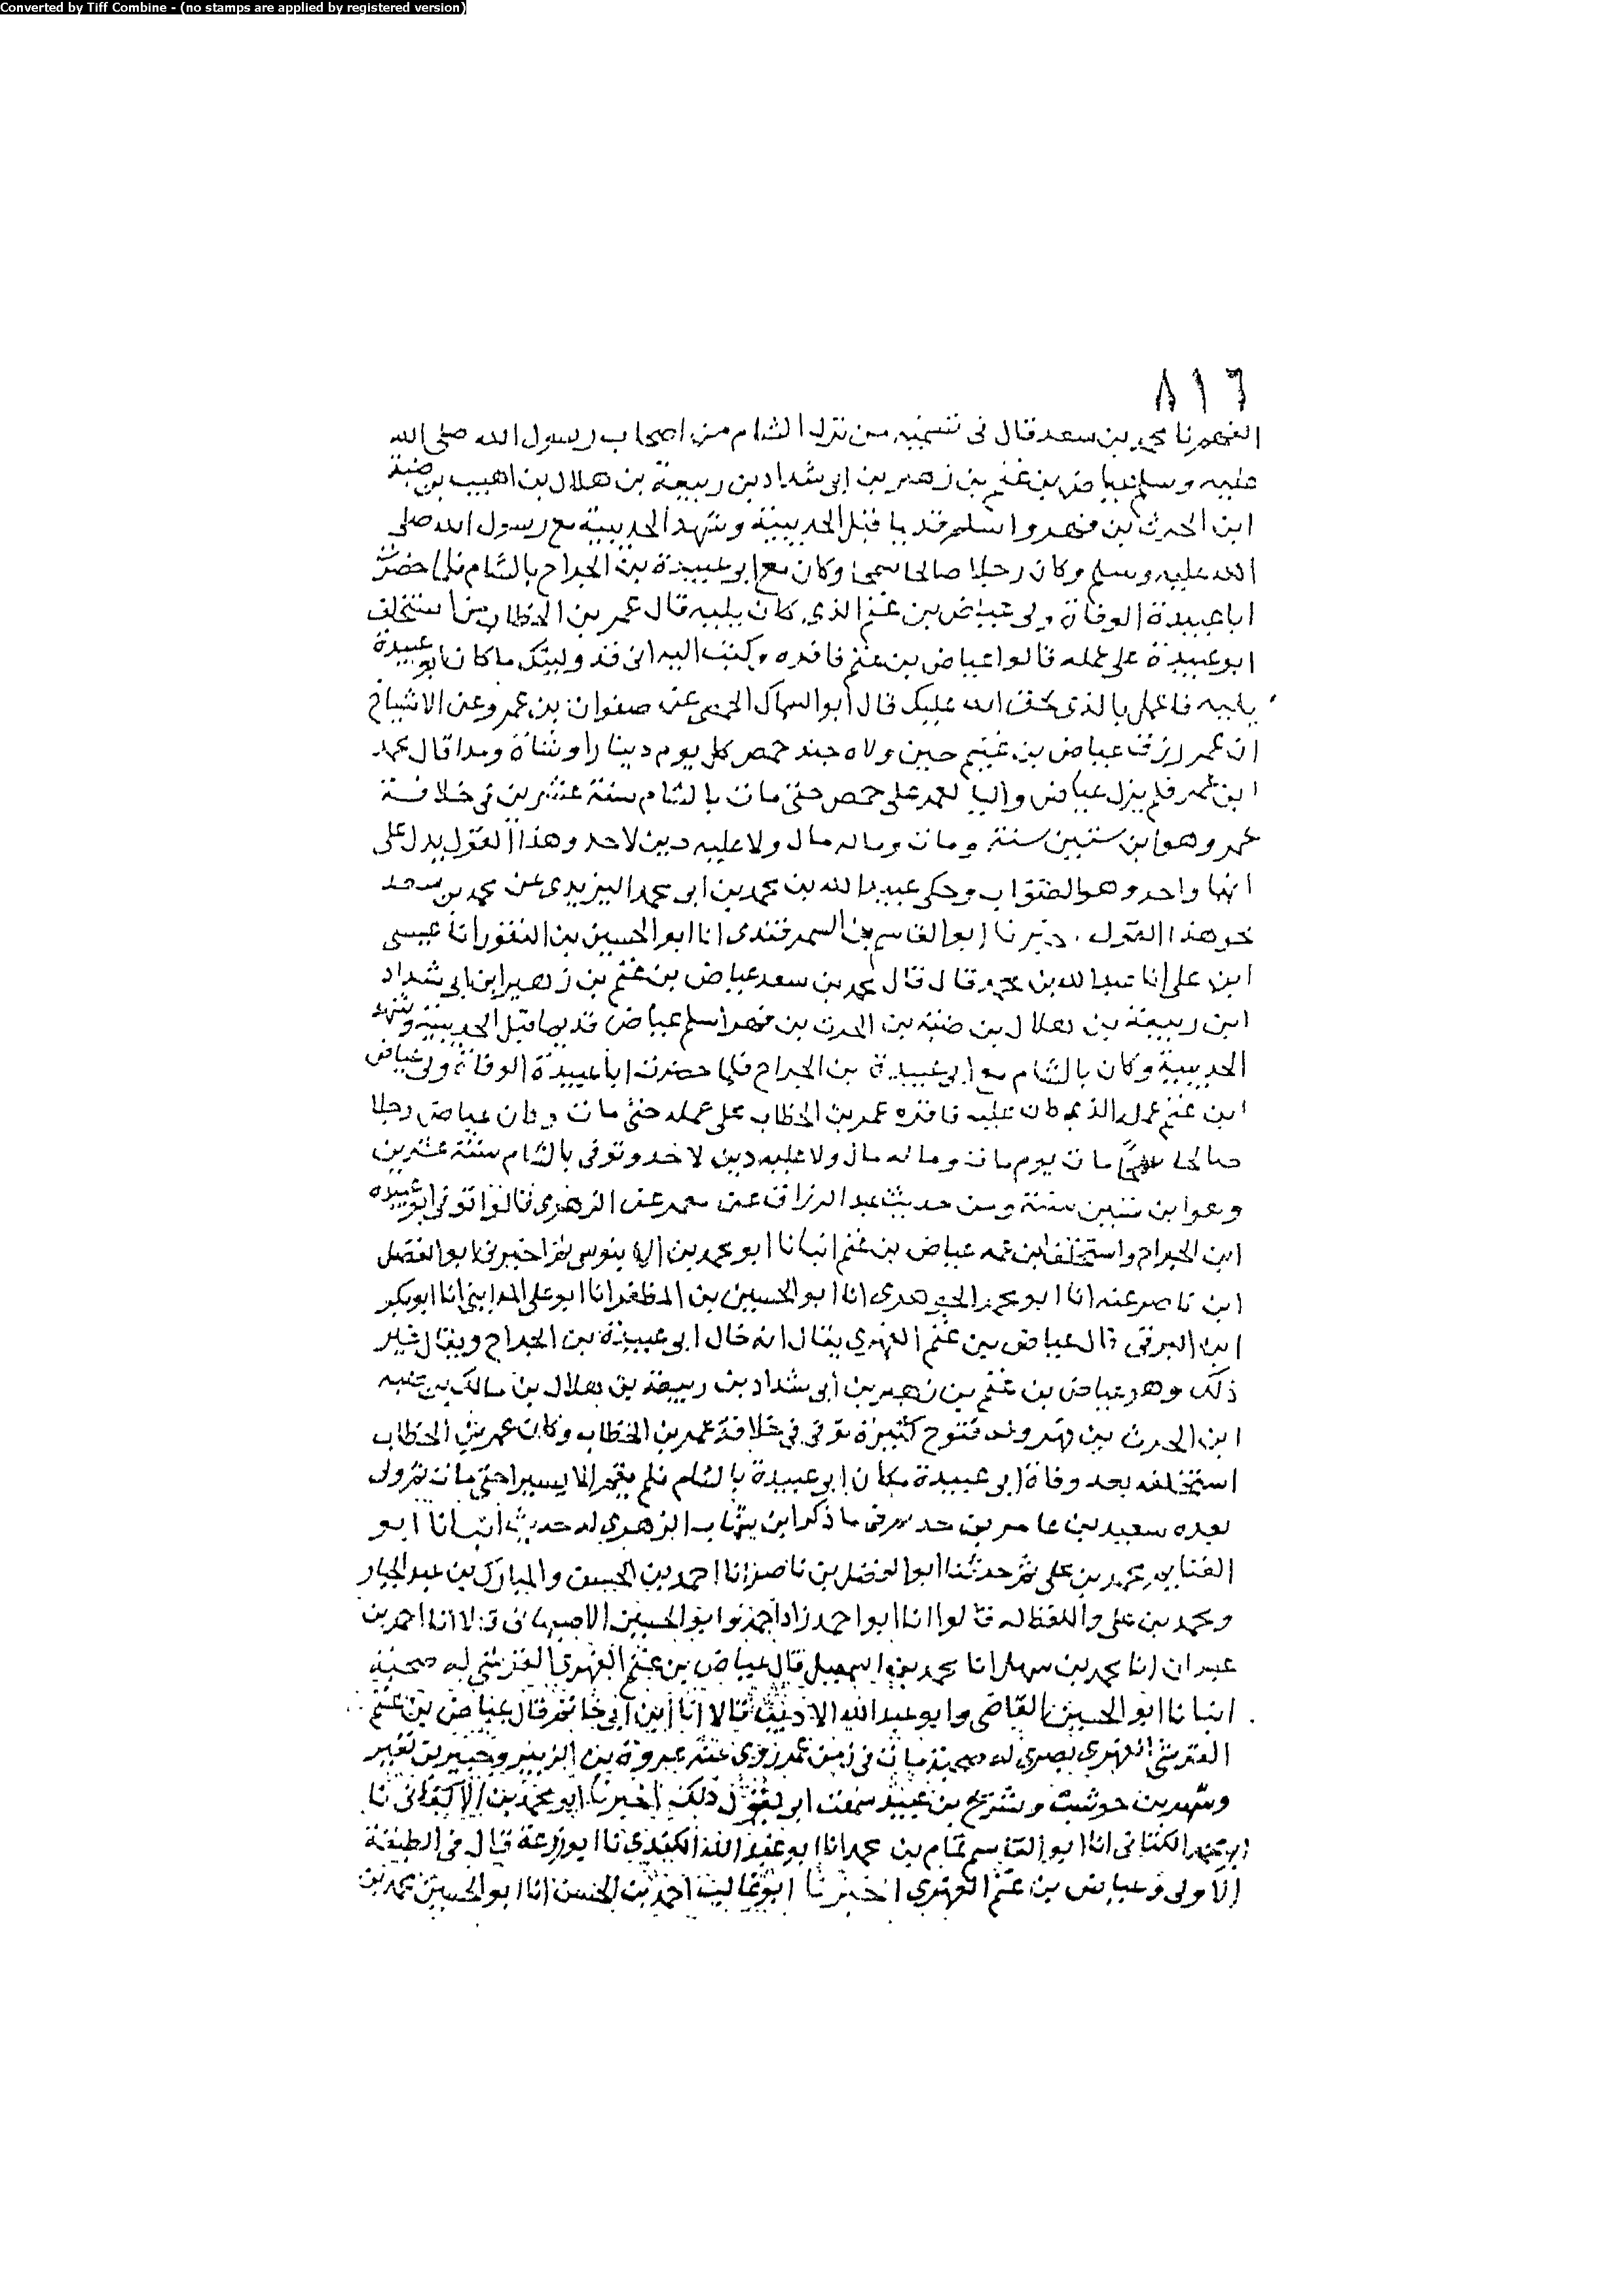 Converted by Tiff Combine - (no stamps are applied by registered version)
٨١٦
الفهم نا محمد بن سعد قال في تسمية من نزل الشام من اصحاب رسول الله صلى الله
عليه وسلم عياض بن غنم بن زهير بن ابي شداد بن ربيعة بن هلال بن اهيب بن ضبة
ابن الحرث بن فهر واسلم قديما قبل الحديبية وشهد الحديبية مع رسول الله صلى
الله عليه وسلم وكان رجلا صالحا سمحا وكان مع ابو عبيدة بن الجراح بالشام فلما حضرت
ابا عبيدة الوفاة ولى عياض بن غنم الذي كان يليه قال عمر بن الخطاب من استخلف
ابو عبيدة على عمله قالوا عياض بن غنم فاقره وكتب اليه اني قد وليتك ما كان ابو عبيدة
يليه فاعمل بالذي يحق الله عليك قال ابو اليمان الحمصي عن صفوان بن عمرو عن الاشياخ
ان عمر رزق عياض بن غنم حين ولاه جند حمص كل يوم دينارا وشاة ومدا قال محمد
ابن عمر فلم يزل عياض واليا لعمر على حمص حتى مات بالشام سنة عشرين في خلافة
عمر وهو ابن ستين سنة ومات وماله مال ولا عليه دين لاحد وهذا القول يدل على
انهما واحد وهو الصواب وحكى عبيد الله بن محمد بن ابو محمد اليزيدي عن محمد بن سعد
نحو هذا القول . اخبرنا ابو القاسم بن السمرقندي انا ابو الحسين بن النقور انا عيسى
ابن علي انا عبد الله بن محمد قال قال محمد بن سعد عياض بن غنم بن زهير ابن ابي شداد
ابن ربيعة بن هلال بن ضبة بن الحرث بن فهر اسلم عياض قديما قبل الحديبية وشهد
الحديبية وكان بالشام مع ابي عبيدة بن الجراح فلما حضرت ابا عبيدة الوفاة ولى عياض
ابن غنم عمله الذي كان عليه فاقره عمر بن الخطاب على عمله حتى مات وكان عياض رجلا
صالحا سمحا مات يوم مات وماله مال ولا عليه دين لاحد وتوفى بالشام سنة عشرين
وهو ابن ستين سنة ومن حديث عبد الرزاق عن معمر عن الزهري قالوا توفى ابو عبيده
ابن الجراح واستخلف ابن عمه عياض بن غنم انبانا ابو محمد بن الابنوسي ثم اخبرنا ابو الفضل
ابن ناصر عنه انا ابو محمد الجوهري انا ابو الحسين بن المظفر انا ابو علي المدايني انا ابو بكر
ابن البرقي قال عياض بن غنم الفهري يقال انه خال ابي عبيدة بن الجراح ويقال غير
ذلك وهو عياض بن غنم بن زهير بن ابي شداد بن ربيعة بن هلال بن مالك بن ضبه
ابن الحرث بن فهر وله فتوح كثيرة توفى في خلافة عمر بن الخطاب وكان عمر بن الخطاب
استخلفه بعد وفاة ابي عبيدة مكان ابو عبيدة بالشام فلم يقم الا يسيرا حتى مات ثم ولى
بعده سعيد بن عامر بن حديم في ما ذكر ابن شهاب الزهري له حديث انبانا ابو
الغنايم محمد بن علي ثم حدثنا ابو الفضل بن ناصر انا احمد بن الحسن والمبارك بن عبد الجبار
ومحمد بن علي واللفظ له قالوا انا ابو احمد زاد احمد وابو الحسين الاصبهاني قالا انا احمد بن
عبدان انا محمد بن سهل انا محمد بن اسمعيل قال عياض بن غنم الفهري القرشي له صحبة
انبانا ابو الحسين القاضي وابو عبد الله الاديب قالا انا ابن ابي حاتم قال عياض بن غنم
القرشي الفهري بصري له صحبة مات في زمن عمر روى عنه عروة بن الزبير وجبير بن نفير
وشهر بن حوشب وشريح بن عبيد سمعت ابي يقول ذلك اخبرنا ابو محمد بن الاكفاني نا
ابو محمد الكتاني انا ابو القاسم تمام بن محمد انا ابو عبد الله الكندي نا ابو زرعة قال في الطبقة
الاولى وعياض بن غنم الفهري اخبرنا ابو غالب احمد بن الحسن انا ابو الحسين محمد بن